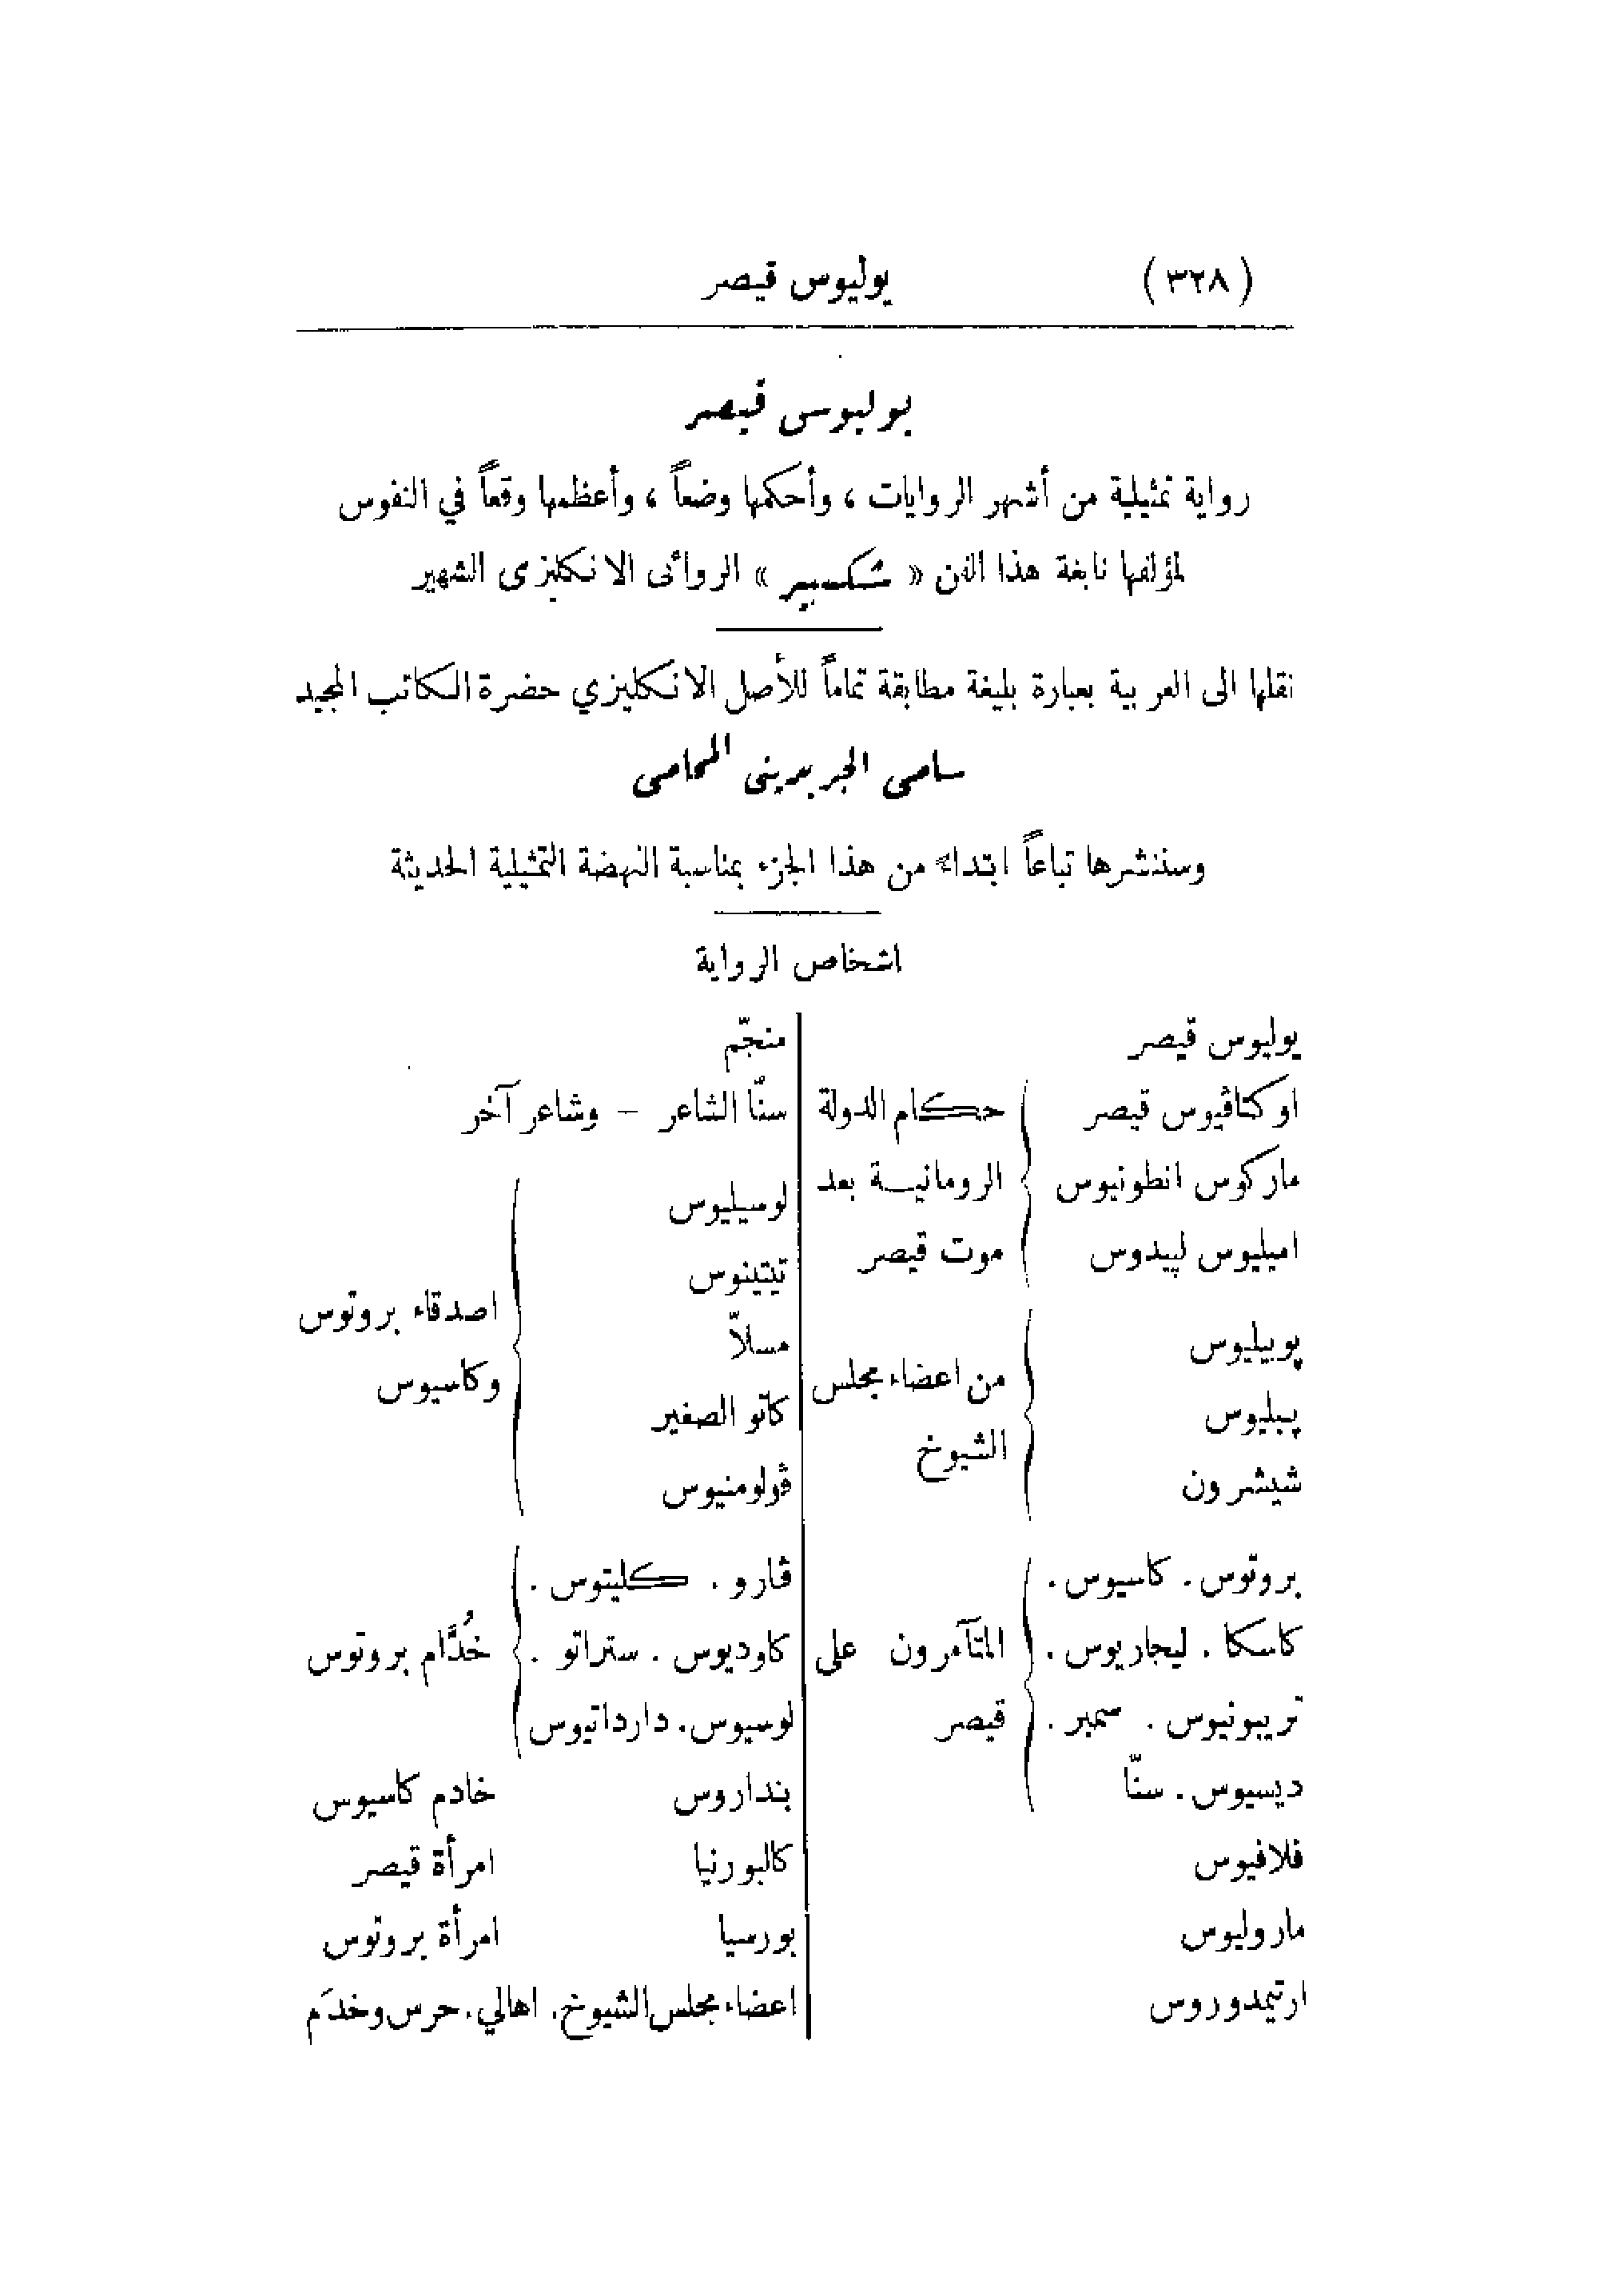 (٣٢٨) يوليوس قيصر
يوليوس قيصر
رواية تمثيلية من أشهر الروايات ، وأحكمها وضعاً ، وأعظمها وقعاً في النفوس
لمؤلفها نابغة هذا الفن « شكسبير » الروائى الانكليزى الشهير
نقلها الى العربية بعبارة بليغة مطابقة تماماً للأصل الانكليزي حضرة الكاتب المجيد
سامى الجريدينى المحامى
وسننشرها تباعاً ابتداء من هذا الجزء بمناسبة النهضة التمثيلية الحديثة
اشخاص الرواية
يوليوس قيصر
اوكتاڤيوس قيصر
ماركوس انطونيوس
اميليوس لپيدوس
حكام الدولة
الرومانيـة بعد
موت قيصر
پوبيليوس
پبليوس
شيشرون
من اعضاء مجلس
الشيوخ
بروتوس . كاسيوس .
كاسكا . ليجاريوس .
تريبونيوس . سمبر .
ديسيوس . سنّا
المتآمرون على
قيصر
فلافيوس
ماروليوس
ارتيمدوروس
منجّم
سنّا الشاعر – وشاعر آخر
لوسيليوس
تيتينوس
مسلاّ
كاتو الصغير
ڤولومنيوس
اصدقاء بروتوس
وكاسيوس
ڤارو . كليتوس .
كاوديوس . ستراتو .
لوسيوس . دارداتيوس
خُدَّام بروتوس
بنداروس خادم كاسيوس
كالبورنيا امرأة قيصر
بورسيا امرأة بروتوس
اعضاء مجلس الشيوخ . اهالي . حرس وخدَم